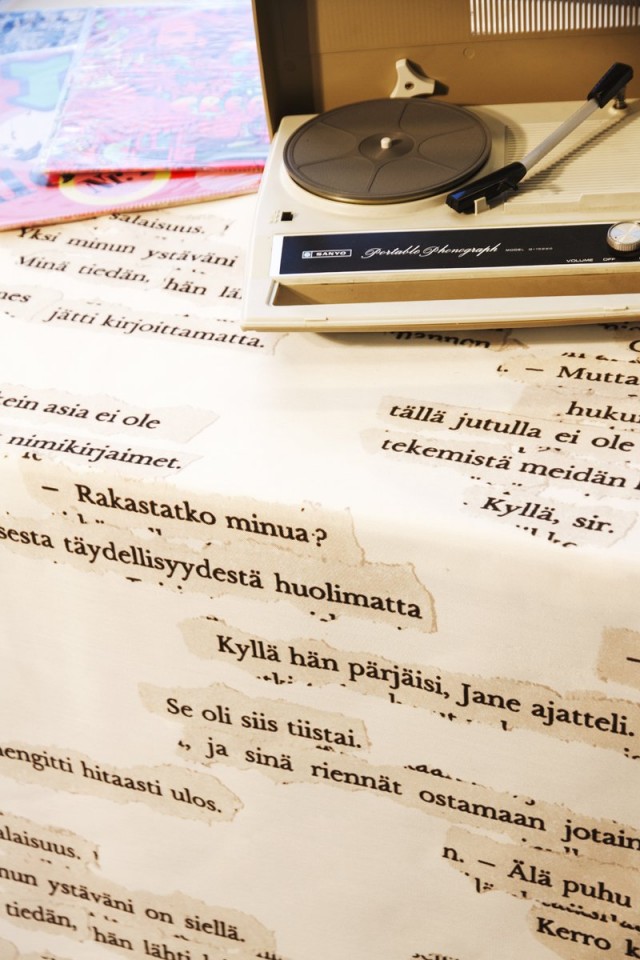 NR.
SANYO Portable Phonograph MODEL
VOLUME OFF
salaisuus.
Yksi minun ystäväni
Minä tiedän, hän
jätti kirjoittamatta.
– Mutta
asia ei ole
tällä jutulla ei ole
nimikirjaimet.
tekemistä meidän
Kyllä, sir.
– Rakastatko minua?
täydellisyydestä huolimatta
Kyllä hän pärjäisi, Jane ajatteli.
Se oli siis tiistai.
ja sinä riennät ostamaan jotain
hitaasti ulos.
n. – Älä puhu
ystäväni on siellä.
tiedän, hän lähti
Kerro